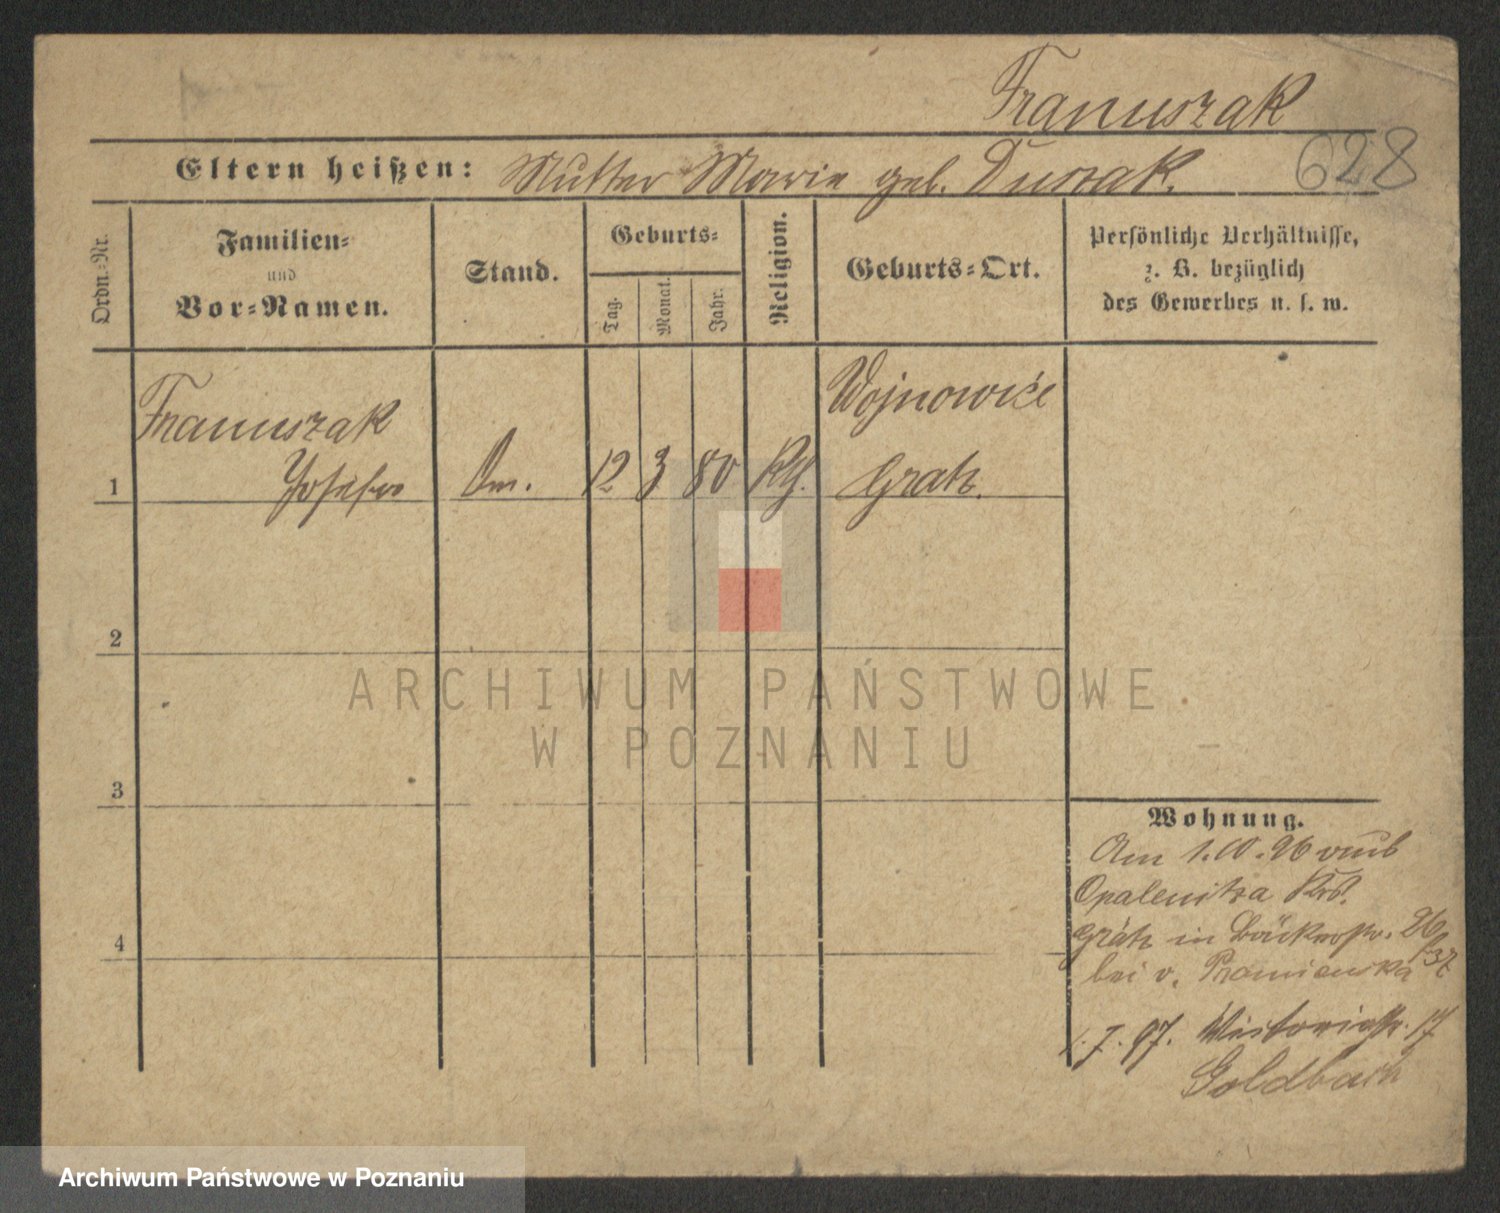 Franuszak
Eltern heißen: Mutter Marie geb. Duszak.
628
Ordn.=Nr.
Familien=
und
Vor=Namen.
Stand.
Geburts=
Tag.
Monat.
Jahr.
Religion.
Geburts=Ort.
Persönliche Verhältnisse,
z. B. bezüglich
des Gewerbes u. s. w.
Franuszak
Wojnowice
1 Josefa 12 3 80 Kth. Grätz.
2
3
4
Wohnung.
Am 1.10.96 von
Opalenitza Krs.
Grätz in Bäckerstr. 26
bei v.
1.7.97. Victoriastr. 17
Goldbach
ARCHIWUM PAŃSTWOWE
W POZNANIU
Archiwum Państwowe w Poznaniu